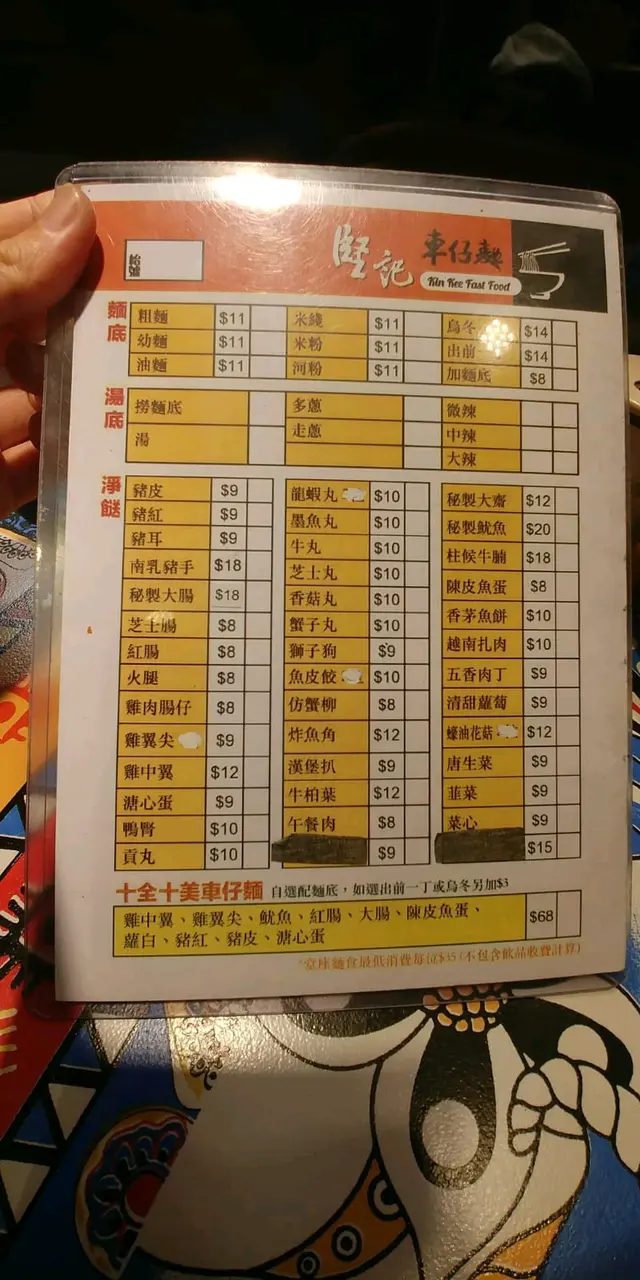 枱號
堅記 車仔麵
Kin Kee Fast Food
麵底
粗麵 $11 米綫 $11 烏冬 $14
幼麵 $11 米粉 $11 出前一 $14
油麵 $11 河粉 $11 加麵底 $8
湯底
撈麵底 多蔥 微辣
湯 走蔥 中辣
大辣
淨餸
豬皮 $9 龍蝦丸 $10 秘製大齋 $12
豬紅 $9 墨魚丸 $10 秘製魷魚 $20
豬耳 $9 牛丸 $10 柱候牛腩 $18
南乳豬手 $18 芝士丸 $10 陳皮魚蛋 $8
秘製大腸 $18 香菇丸 $10 香茅魚餅 $10
芝士腸 $8 蟹子丸 $10 越南扎肉 $10
紅腸 $8 獅子狗 $9 五香肉丁 $9
火腿 $8 魚皮餃 $10 清甜蘿蔔 $9
雞肉腸仔 $8 仿蟹柳 $8 蠔油花菇 $12
雞翼尖 $9 炸魚角 $12 唐生菜 $9
雞中翼 $12 漢堡扒 $9 韮菜 $9
溏心蛋 $9 牛柏葉 $12 菜心 $9
鴨腎 $10 午餐肉 $8 $15
貢丸 $10 $9
十全十美車仔麵 自選配麵底，如選出前一丁或烏冬另加$3
雞中翼、雞翼尖、魷魚、紅腸、大腸、陳皮魚蛋、 $68
蘿白、豬紅、豬皮、溏心蛋
*堂座麵食最低消費每位$35 (不包含飲品收費計算)